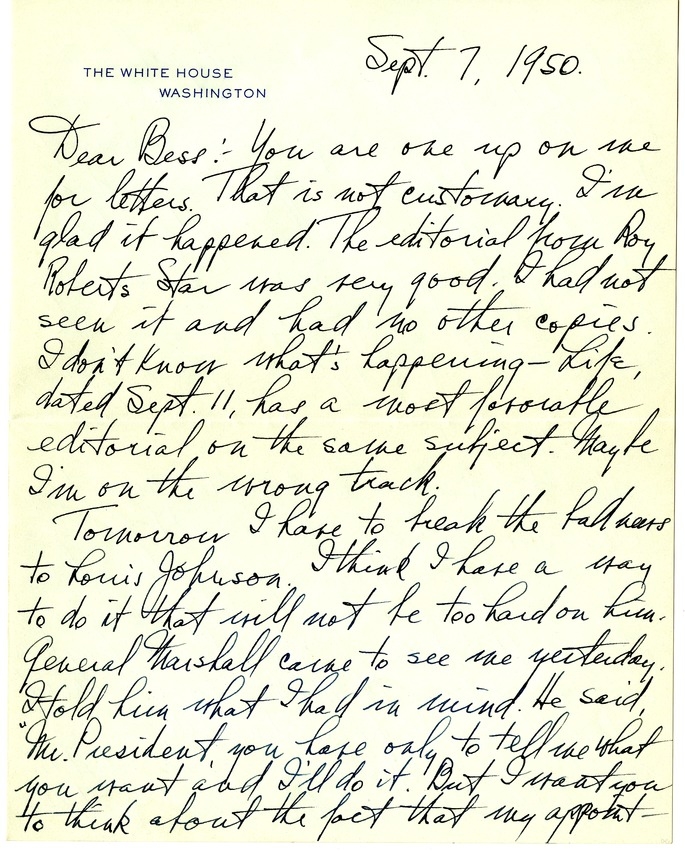 Sept. 7, 1950.
THE WHITE HOUSE
WASHINGTON
Dear Bess:- You are one up on me
for letters. That is not customary. I'm
glad it happened. The editorial from Roy
Roberts Star was very good. I had not
seen it and had no other copies.
I don't know what's happening- Life,
dated Sept. 11, has a most favorable
editorial on the same subject. Maybe
I'm on the wrong track.
Tomorrow I have to break the bad news
to Louis Johnson. I think I have a way
to do it that will not be too hard on him.
General Marshall came to see me yesterday.
I told him what I had in mind. He said,
"Mr. President, you have only to tell me what
you want and I'll do it. But I want you
to think about the fact that my appoint-